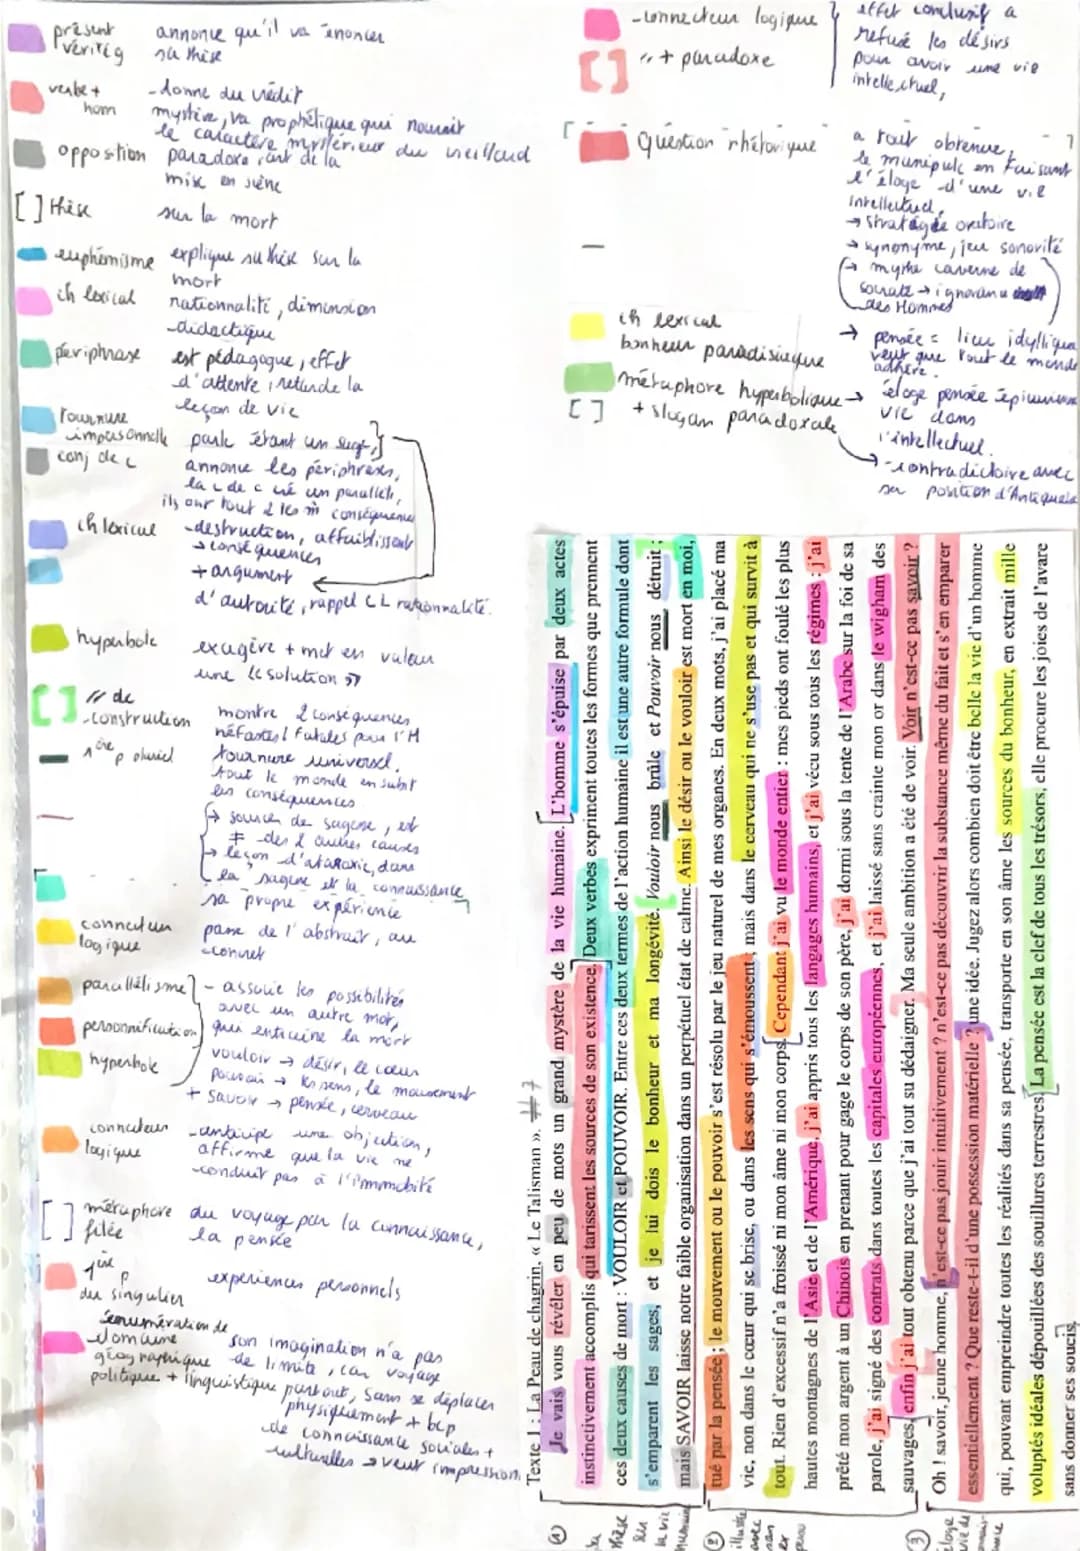 présent vérité g
annonce qu'il va énoncer
sa thèse
verbe + nom
- donne du crédit
mystère, va prophétique qui nourrit
le caractère mystérieux du vieillard
opposition
paradoxe, art de la
mise en scène
[ ] thèse
sur la mort
euphémisme
explique sa thèse sur la
mort
ch lexical
rationnalité, dimension
didactique
périphrase
est pédagogue, effet
d'attente, retarde la
leçon de vie
Tournure
impersonnelle
parle étant un sage,
conj de c
annonce les périphrases,
la c de c crée un parallèle,
ils ont tout 2 les m̂ conséquences
ch lexical
- destruction, affaiblissent
→ conséquences
+ argument
d'autorité, rappel CL rationnalité.
hyperbole
exagère + met en valeur
une
[ ] // de
construction
montre 2 conséquences
néfastes / fatales pour l'H
1ère p pluriel
tournure universel,
tout le monde en subit
les conséquences
→ source de sagesse, est
≠ des 2 autres causes
→ leçon d'ataraxie, dans
la sagesse et la connaissance
sa propre expérience
connecteur
logique
passe de l'abstrait, au
concret
parallélisme
- associe les possibilités
avec un autre mot,
personnification
qui entraine la mort
hyperbole
vouloir → désir, le cœur
pouvoir → les sens, le mouvement
+ savoir → pensée, cerveau
connecteur
logique
- anticipe une objection,
affirme que la vie ne
conduit pas à l'immobilité
[ ] métaphore
filée
du voyage par la connaissance,
la pensée
1ère p
du singulier
expériences personnels
énumération de
domaine
géographique
politique + linguistique
son imagination n'a pas
de limite, car voyage
partout, sans se déplacer
physiquement + bcp
de connaissance sociales +
culturelles → veut impression
- connecteur logique
[ ] " + paradoxe
effet conclusif a
refusé les désirs
pour avoir une vie
intellectuel,
Question rhétorique
a tout obtenue,
le manipule en faisant
l'éloge d'une vie
intellectuel,
→ stratégie oratoire
→ synonyme, jeu sonorité
→ mythe caverne de
Socrate → ignorance
des Hommes
ch lexical
bonheur paradisiaque
→ pensée = lieu idyllique
veut que tout le monde
adhère.
métaphore hyperbolique →
[ ] + slogan paradoxale
éloge pensée épicurienne
vie dans
l'intellectuel.
→ - contradictoire avec
sa position d'Antiquaire
Texte 1 : La Peau de chagrin, « Le Talisman ». #7
① la thèse sur la vie humaine
Je vais vous révéler en peu de mots un grand mystère de la vie humaine. L'homme s'épuise par deux actes
instinctivement accomplis qui tarissent les sources de son existence. Deux verbes expriment toutes les formes que prennent
ces deux causes de mort : VOULOIR et POUVOIR. Entre ces deux termes de l'action humaine il est une autre formule dont
s'emparent les sages, et je lui dois le bonheur et ma longévité. Vouloir nous brûle et Pouvoir nous détruit ;
mais SAVOIR laisse notre faible organisation dans un perpétuel état de calme. Ainsi le désir ou le vouloir est mort en moi,
② illustre avec son
tué par la pensée ; le mouvement ou le pouvoir s'est résolu par le jeu naturel de mes organes. En deux mots, j'ai placé ma
vie, non dans le cœur qui se brise, ou dans les sens qui s'émoussent ; mais dans le cerveau qui ne s'use pas et qui survit à
tout. Rien d'excessif n'a froissé ni mon âme ni mon corps. Cependant j'ai vu le monde entier : mes pieds ont foulé les plus
hautes montagnes de l'Asie et de l'Amérique, j'ai appris tous les langages humains, et j'ai vécu sous tous les régimes : j'ai
prêté mon argent à un Chinois en prenant pour gage le corps de son père, j'ai dormi sous la tente de l'Arabe sur la foi de sa
parole, j'ai signé des contrats dans toutes les capitales européennes, et j'ai laissé sans crainte mon or dans le wigham des
sauvages, enfin j'ai tout obtenu parce que j'ai tout su dédaigner. Ma seule ambition a été de voir. Voir n'est-ce pas savoir ?
③ éloge vie de
Oh ! savoir, jeune homme, n'est-ce pas jouir intuitivement ? n'est-ce pas découvrir la substance même du fait et s'en emparer
essentiellement ? Que reste-t-il d'une possession matérielle ? une idée. Jugez alors combien doit être belle la vie d'un homme
qui, pouvant empreindre toutes les réalités dans sa pensée, transporte en son âme les sources du bonheur, en extrait mille
voluptés idéales dépouillées des souillures terrestres. La pensée est la clef de tous les trésors, elle procure les joies de l'avare
sans donner ses soucis.